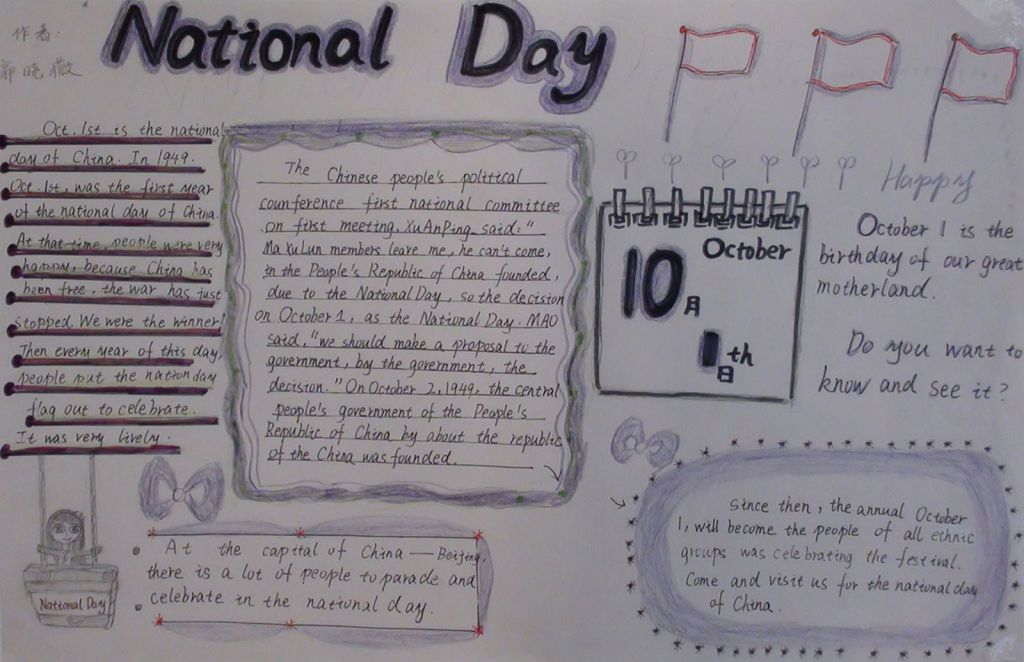 National Day
作者:
郭晓薇
Oct. 1st is the national
day of China. In 1949.
Oct. 1st, was the first year
of the national day of China.
At that time, people were very
happy, because China has
been free, the war has just
stopped. We were the winner!
Then every year of this day,
people put the nation day
flag out to celebrate.
It was very lively.
National Day
The Chinese people's political
counference first national committee
on first meeting, XuAnPing said: "
Ma XuLun members leave me, he can't come,
in the People's Republic of China founded,
due to the National Day, so the decision
on October 1, as the National Day. MAO
said, "we should make a proposal to the
government, by the government, the
decision." On October 2, 1949, the central
people's government of the People's
Republic of China by about the republic
of the China was founded.
At the capital of China — Beijing,
there is a lot of people to parade and
celebrate in the national day.
October
10月
1th
日
Happy
October 1 is the
birthday of our great
motherland.
Do you want to
know and see it?
Since then, the annual October
1, will become the people of all ethnic
groups was celebrating the festival.
Come and visit us for the national day
of China.